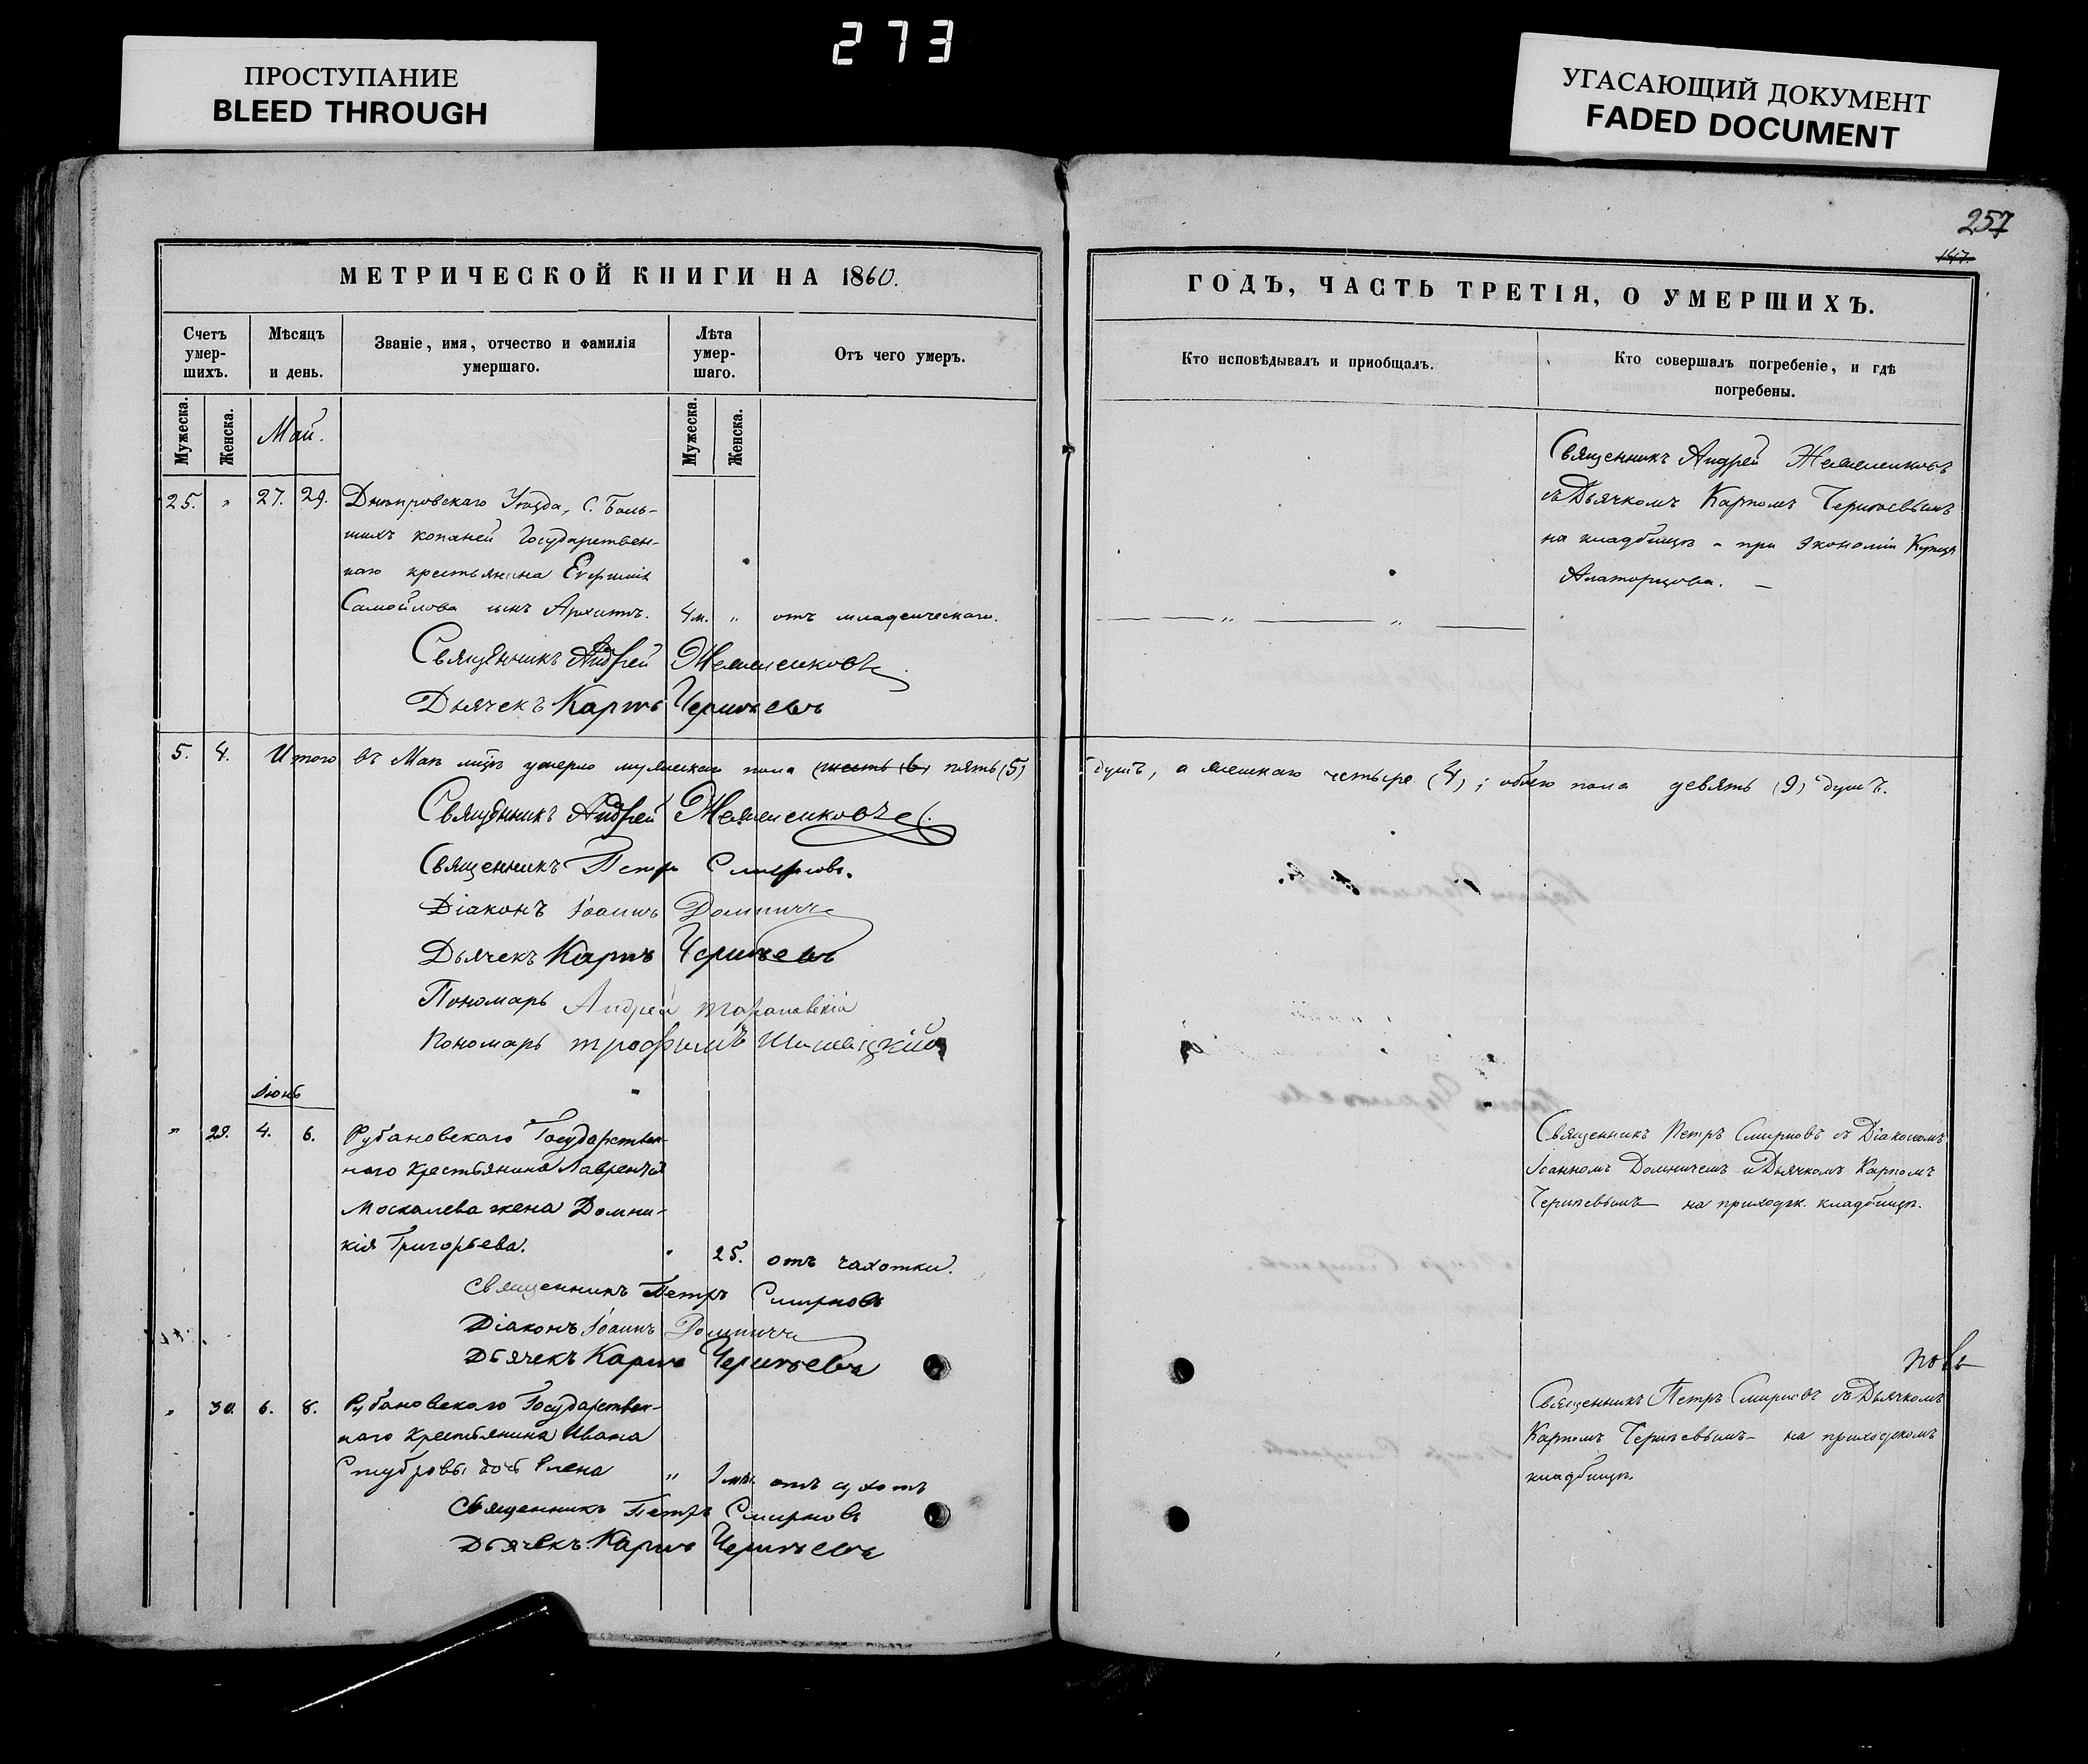 273
ПРОСТУПАНИЕ
BLEED THROUGH
УГАСАЮЩИЙ ДОКУМЕНТ
FADED DOCUMENT
257
147.
МЕТРИЧЕСКОЙ КНИГИ НА 1860.
Счетъ умер-шихъ.
Мѣсяцъ и день.
Званіе, имя, отчество и фамилія умершаго.
Лѣта умер-шаго.
Отъ чего умеръ.
Мужеска.
Женска.
Май.
Мужеска.
Женска.
25. " 27. 29. Днѣпровскаго Уѣзда, С. Боль-
шихъ копаней Государствен-
наго крестьянина Евфимія
Самойлова сынъ Архипъ. 4 м. " отъ младенческаго.
Священникъ Андрей
Дьячекъ Карпъ
5. 4. Итого въ Маѣ мцѣ умерло мужескаго пола (шесть (6) пять (5)
Священникъ Андрей
Священникъ Петръ Смирновъ.
Діаконъ Іоаннъ
Дьячекъ Карпъ
Пономарь Андрей
Пономарь Трофимъ
Іюнь
" 29. 4. 6. Рубановскаго Государствен-
наго Крестьянина Лаврентія
Москалева жена Домни-
кія Григорьева. " 25. отъ чахотки.
Священникъ Петръ Смирновъ
Діаконъ Іоаннъ
Дьячекъ Карпъ
" 30. 6. 8. Рубановскаго Государствен-
наго Крестьянина Ивана
дочь Елена "
Священникъ Петръ Смирновъ
Дьячекъ Карпъ
ГОДЪ, ЧАСТЬ ТРЕТІЯ, О УМЕРШИХЪ.
Кто исповѣдывалъ и приобщалъ.
Кто совершалъ погребеніе, и гдѣ погребены.
Священникъ Андрей
съ Дьячкомъ Карпомъ
на кладбищѣ при Экономіи Купца
душъ, а женскаго четыре (4); обоего пола девять (9) душъ.
Священникъ Петръ Смирновъ съ Діакономъ
Іоанномъ и Дьячкомъ Карпомъ
на приходск. кладбищѣ.
Священникъ Петръ Смирновъ съ Дьячкомъ
Карпомъ на приходскомъ
кладбищѣ.